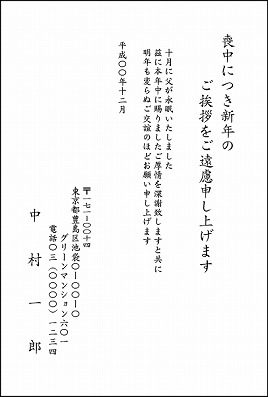 喪中につき新年の
ご挨拶をご遠慮申し上げます
十月に父が永眠いたしました
茲に本年中に賜りましたご厚情を深謝致しますと共に
明年も変らぬご交誼のほどお願い申し上げます
平成〇〇年十二月
〒一七一-〇〇一四
東京都豊島区池袋〇-〇〇-〇
グリーンマンション六〇一
電話〇三(〇〇〇〇)一二三四
中村一郎